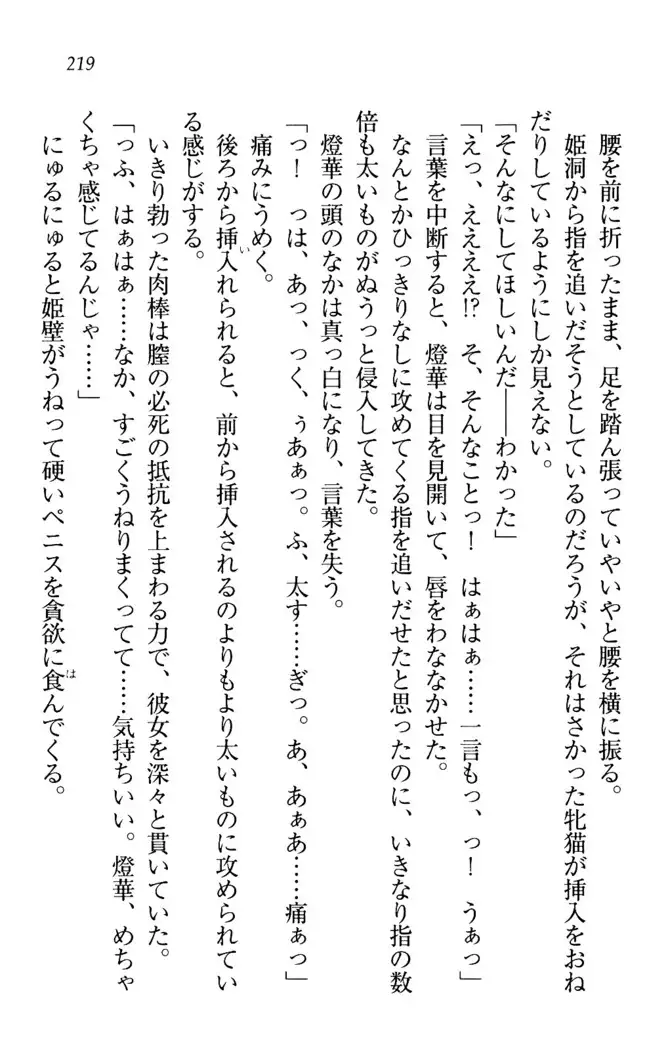 219
腰を前に折ったまま、足を踏ん張っていやいやと腰を横に振る。
姫洞から指を追いだそうとしているのだろうが、それはさかった牝猫が挿入をおね
だりしているようにしか見えない。
「そんなにしてほしいんだ――わかった」
「えっ、ええええ!? そ、そんなことっ！ はぁはぁ……一言もっ、っ！ うぁっ」
言葉を中断すると、燈華は目を見開いて、唇をわななかせた。
なんとかひっきりなしに攻めてくる指を追いだせたと思ったのに、いきなり指の数
倍も太いものがぬうっと侵入してきた。
燈華の頭のなかは真っ白になり、言葉を失う。
「っ！ っは、あっ、っく、ぅあぁっ。ふ、太す……ぎっ。あ、あぁあ……痛ぁっ」
痛みにうめく。
後ろから挿入れられると、前から挿入されるのよりもより太いものに攻められてい
る感じがする。
いきり勃った肉棒は膣の必死の抵抗を上まわる力で、彼女を深々と貫いていた。
「っふ、はぁはぁ……なか、すごくうねりまくってて……気持ちいい。燈華、めちゃ
くちゃ感じてるんじゃ……」
にゅるにゅると姫壁がうねって硬いペニスを貪欲に食んでくる。